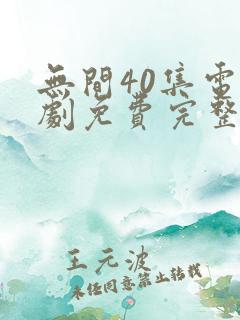 無間40集電
劇免費完整
王元波
未经同意禁止转载